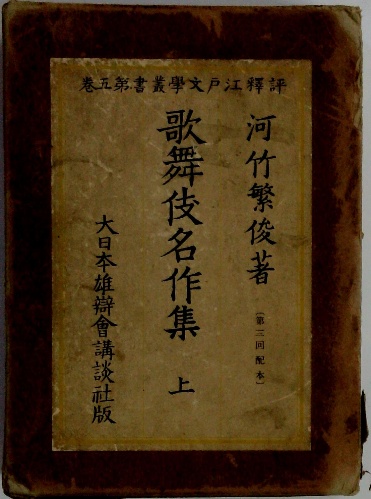 評釋江戸文學叢書第五巻
河竹繁俊著
〔第三回配本〕
歌舞伎名作集 上
大日本雄辯會講談社版